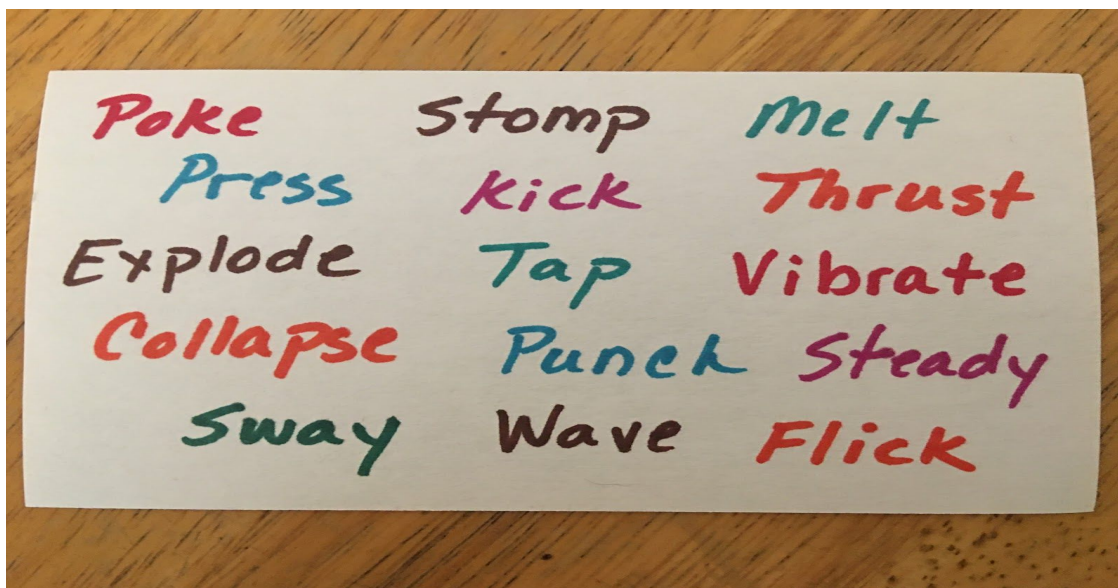 Poke Stomp Melt
Press Kick Thrust
Explode Tap Vibrate
Collapse Punch Steady
Sway Wave Flick